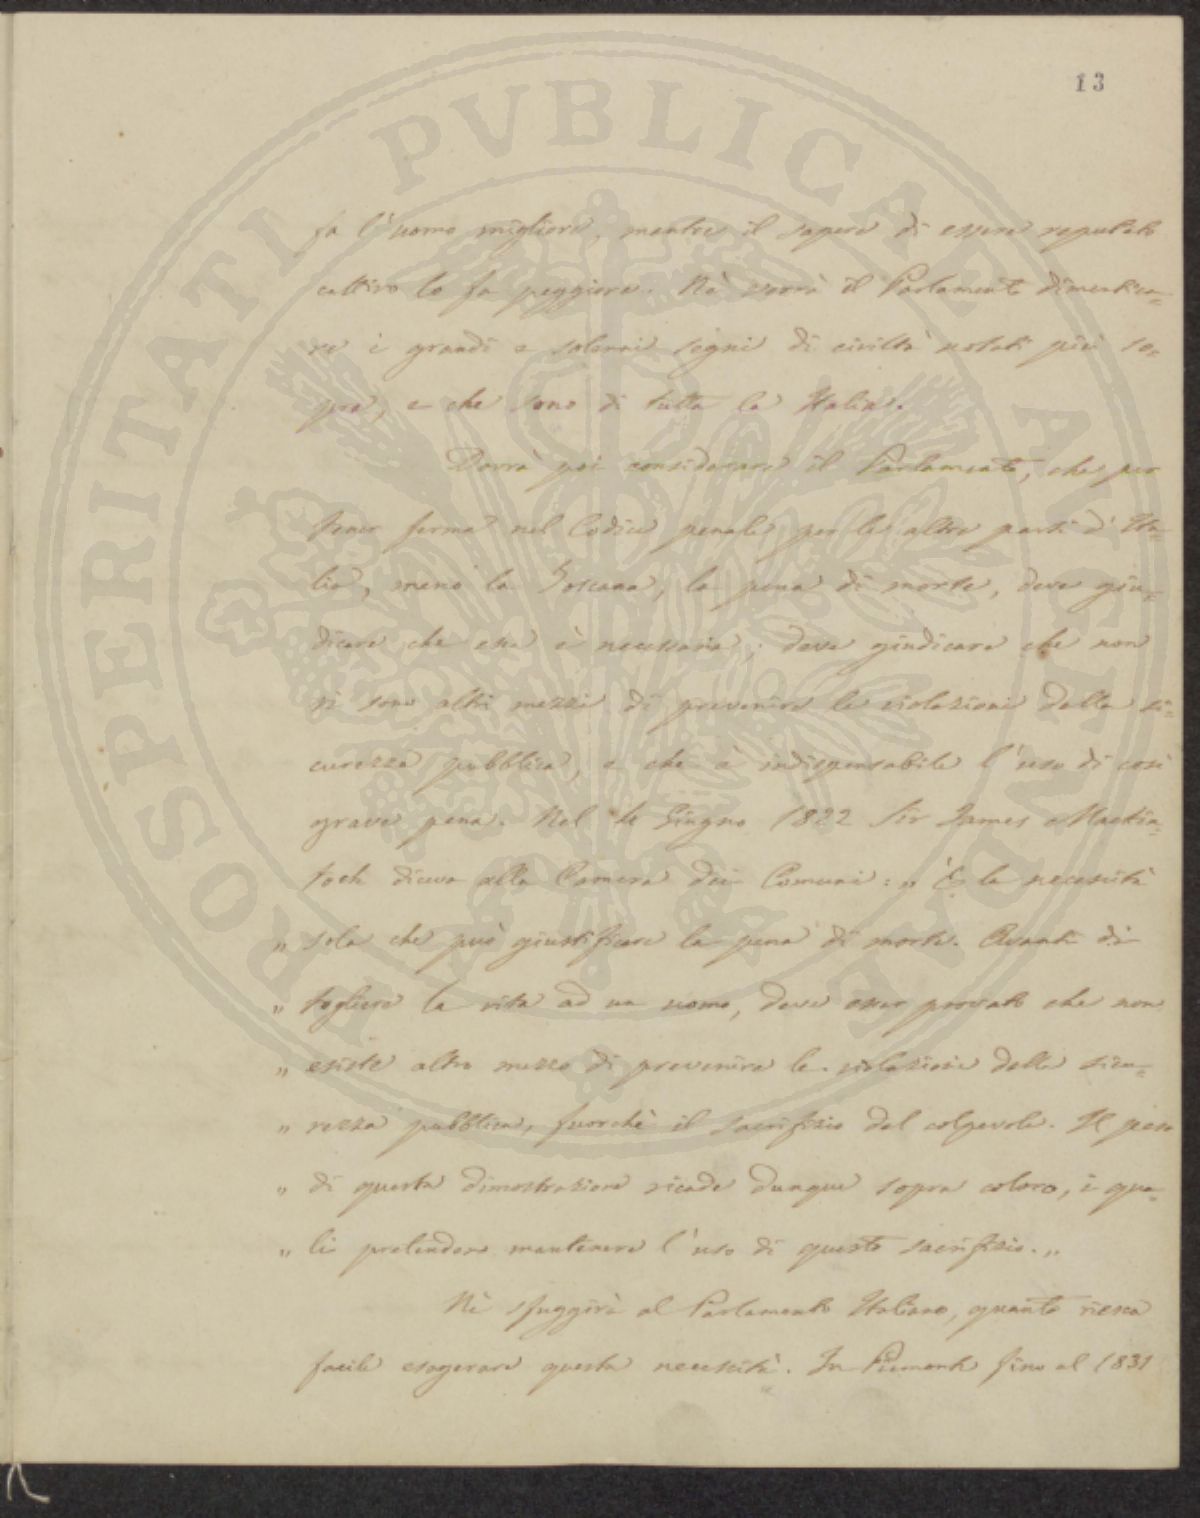 13
PUBLICAE AUCTUMDAE PROSPERITATI
fa l'uomo migliore, mentre il sapere di essere reputato
cattivo lo fa peggiore. Nè vorrà il Parlamento dimentica=
re i grandi e solenni segni di civiltà notati più so=
pra, e che sono di tutta la Italia.
Dovrà poi considerare il Parlamento, che per
tener ferma nel Codice penale per le altre parti d'Ita=
lia, meno la Toscana, la pena di morte, deve giu=
dicare che essa è necessaria; deve giudicare che non
vi sono altri mezzi di prevenire le violazioni della si=
curezza pubblica, e che è indispensabile l'uso di così
grave pena. Nel Giugno 1822 Sir James Mackin=
tosh diceva alla Camera dei Comuni: „ È la necessità
„ sola che può giustificare la pena di morte. Avanti di
„ togliere la vita ad un uomo, deve esser provato che non
„ esiste altro mezzo di prevenire le violazioni della sicu=
„ rezza pubblica, fuorchè il sacrifizio del colpevole. Il peso
„ di questa dimostrazione ricade dunque sopra coloro, i qua=
„ li pretendono mantenere l'uso di questo sacrifizio. „
Nè sfuggirà al Parlamento Italiano, quanto riesca
facile esagerare questa necessità. In Piemonte fino al 1831